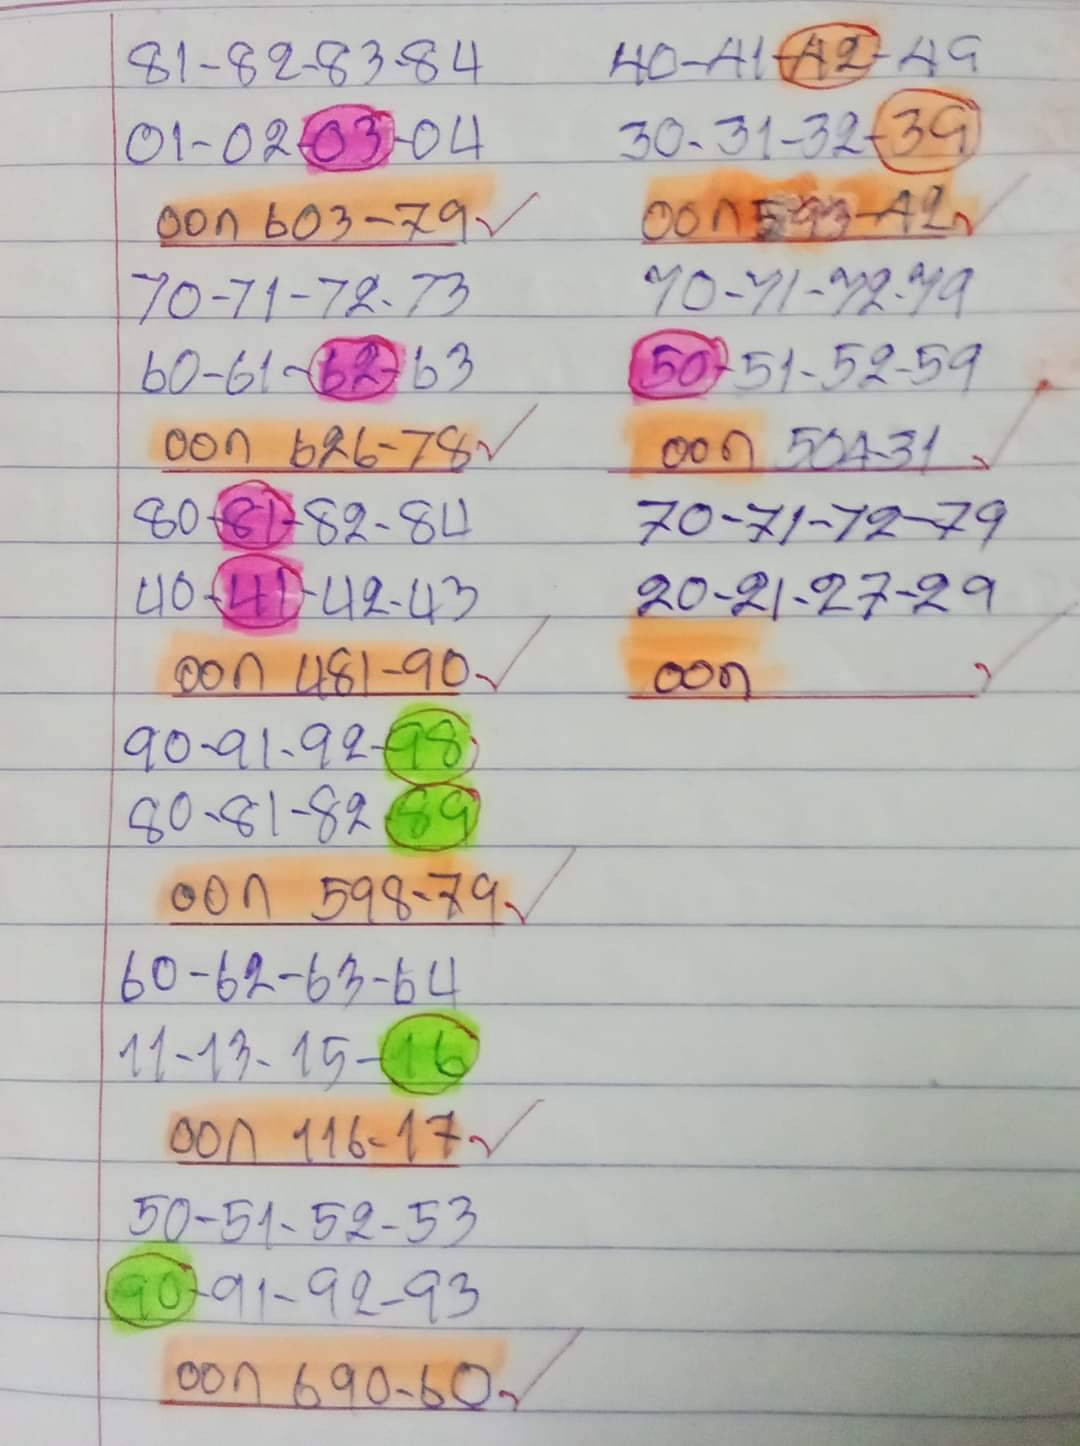 81-82-83-84
01-02-03-04
ออก 603-79
70-71-72-73
60-61-62-63
ออก 626-78
80-81-82-84
40-41-42-43
ออก 481-90
90-91-92-98
80-81-82-89
ออก 598-79
60-62-63-64
11-13-15-16
ออก 116-17
50-51-52-53
90-91-92-93
ออก 690-60
40-41-42-49
30-31-32-39
ออก 593-42
70-71-72-79
50-51-52-59
ออก 504-31
70-71-72-79
20-21-27-29
ออก